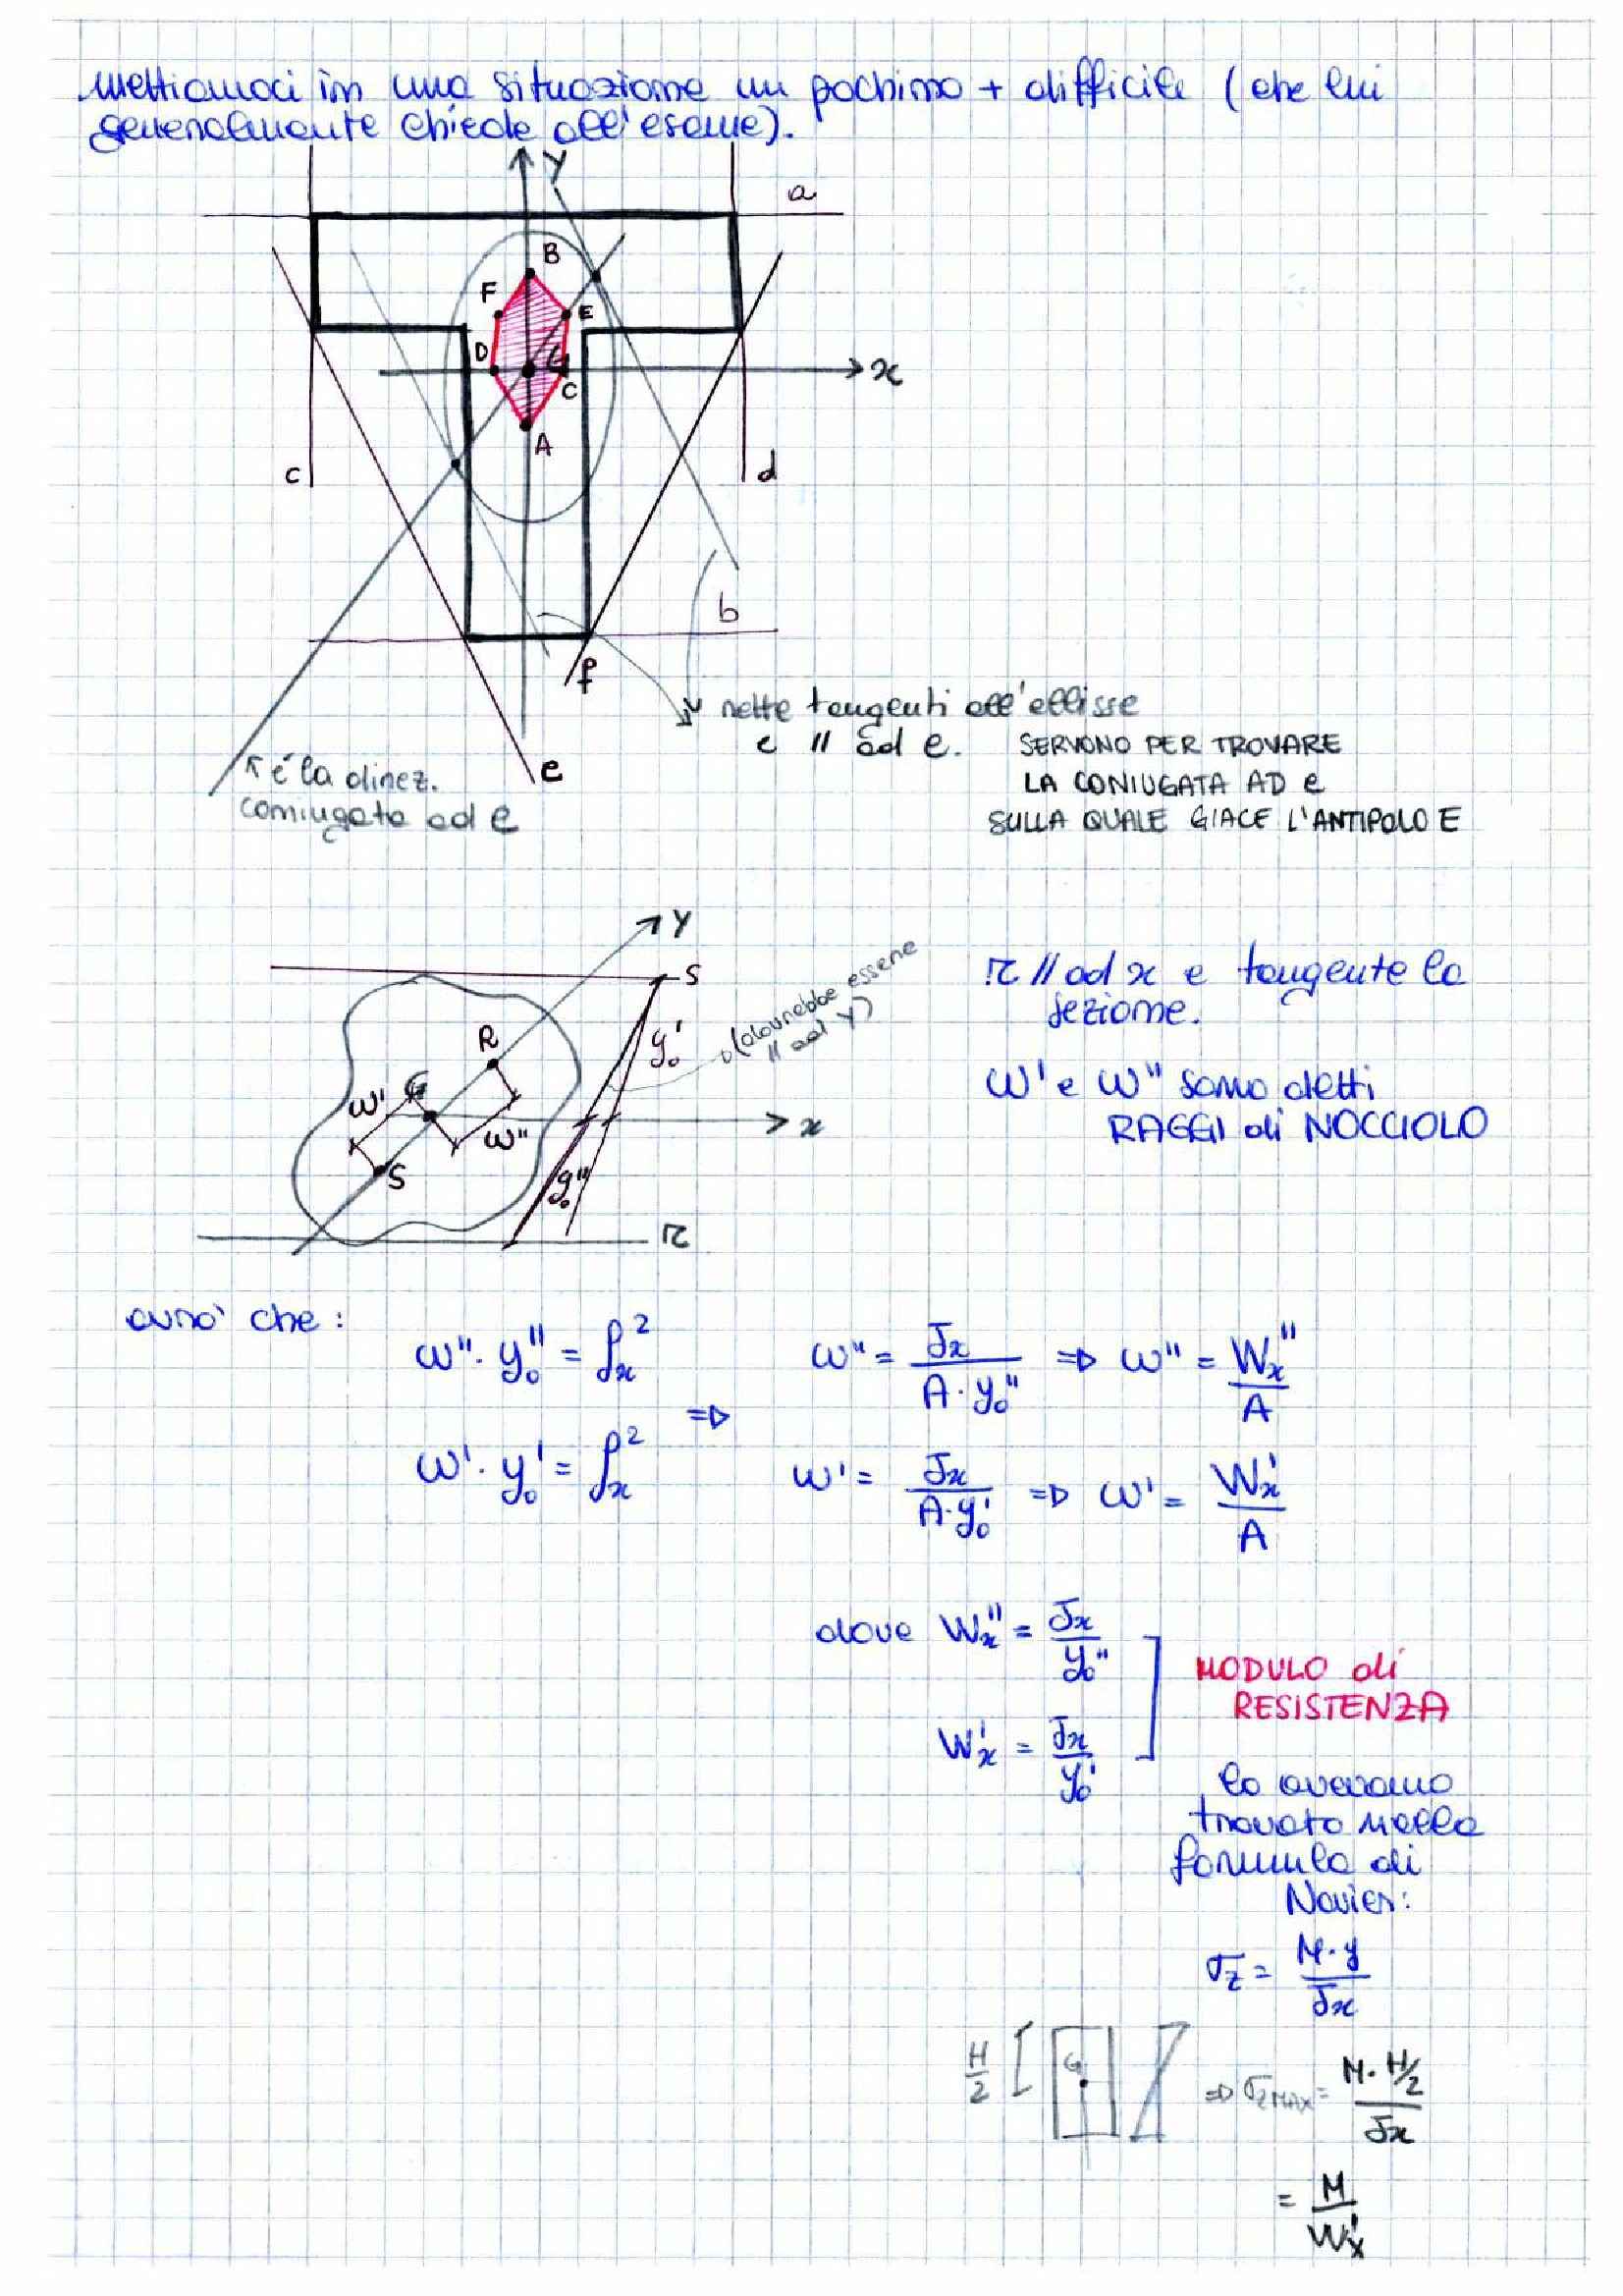 mettiamoci in una situazione un pochino + difficile (che lui
generalmente chiede all'esame).
Y
a
B
F
E
D
G
x
C
A
c
d
b
f
rette tangenti all'ellisse
e // ad e.
SERVONO PER TROVARE
LA CONIUGATA AD e
SULLA QUALE GIACE L'ANTIPOLO E
e
↖ é la direz.
coniugata ad e
Y
s
(dovrebbe essere
// ad Y)
y₀'
R
G
ω'
ω''
x
S
y₀''
r
r // ad x e tangente la
sezione.
ω' e ω'' sono detti
RAGGI di NOCCIOLO
avrò che:
ω''· y₀'' = ρx²
ω'· y₀' = ρx²
⇒
ω'' = Jx / A·y₀'' ⇒ ω'' = Wx'' / A
ω' = Jx / A·y₀' ⇒ ω' = Wx' / A
dove Wx'' = Jx / y₀''
Wx' = Jx / y₀'
MODULO di
RESISTENZA
lo avevamo
trovato nella
formula di
Navier:
σz = M·y / Jx
H/2
G
⇒ σz MAX = M·H/2 / Jx
= M / Wx'